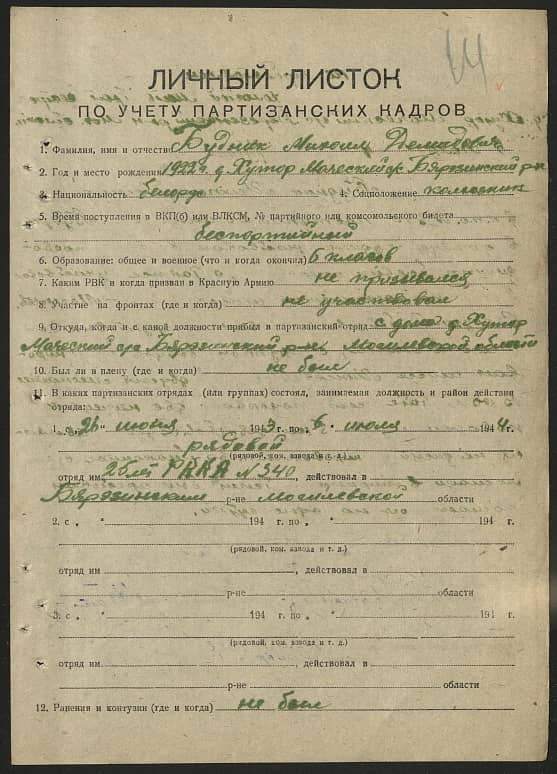 44
ЛИЧНЫЙ ЛИСТОК
ПО УЧЕТУ ПАРТИЗАНСКИХ КАДРОВ
1. Фамилия, имя и отчество Будник Михаил Демидович
2. Год и место рождения 1922 г. д. Хутор Маческий с/с Бярэзинский р-н
3. Национальность белорус 4. Соцположение колхозник
5. Время поступления в ВКП(б) или ВЛКСМ, № партийного или комсомольского билета
беспортийный
6. Образование: общее и военное (что и когда окончил) 6 класов
7. Каким РВК и когда призван в Красную Армию не призывался
8. Участие на фронтах (где и когда) не участвовал
9. Откуда, когда и с какой должности прибыл в партизанский отряд с дома д. Хутор
Маческий с/с Бярэзинский р-на, Могилевской области
10. Был ли в плену (где и когда) не был
11. В каких партизанских отрядах (или группах) состоял, занимаемая должность и район действия
отряда:
1. с „26“ июня 1943 г. по „6“ июля 1944 г.
рядовой
(рядовой, ком. взвода и т. д.)
отряд им 25 лет РККА № 340, действовал в
Бярэзинским р-не Могилевской области
2. с „ “ 194 г. по „ “ 194 г.
(рядовой, ком. взвода и т. д.)
отряд им , действовал в
р-не области
3. с „ “ 194 г. по „ “ 194 г.
(рядовой, ком. взвода и т. д.)
отряд им , действовал в
р-не области
12. Ранения и контузии (где и когда) не был